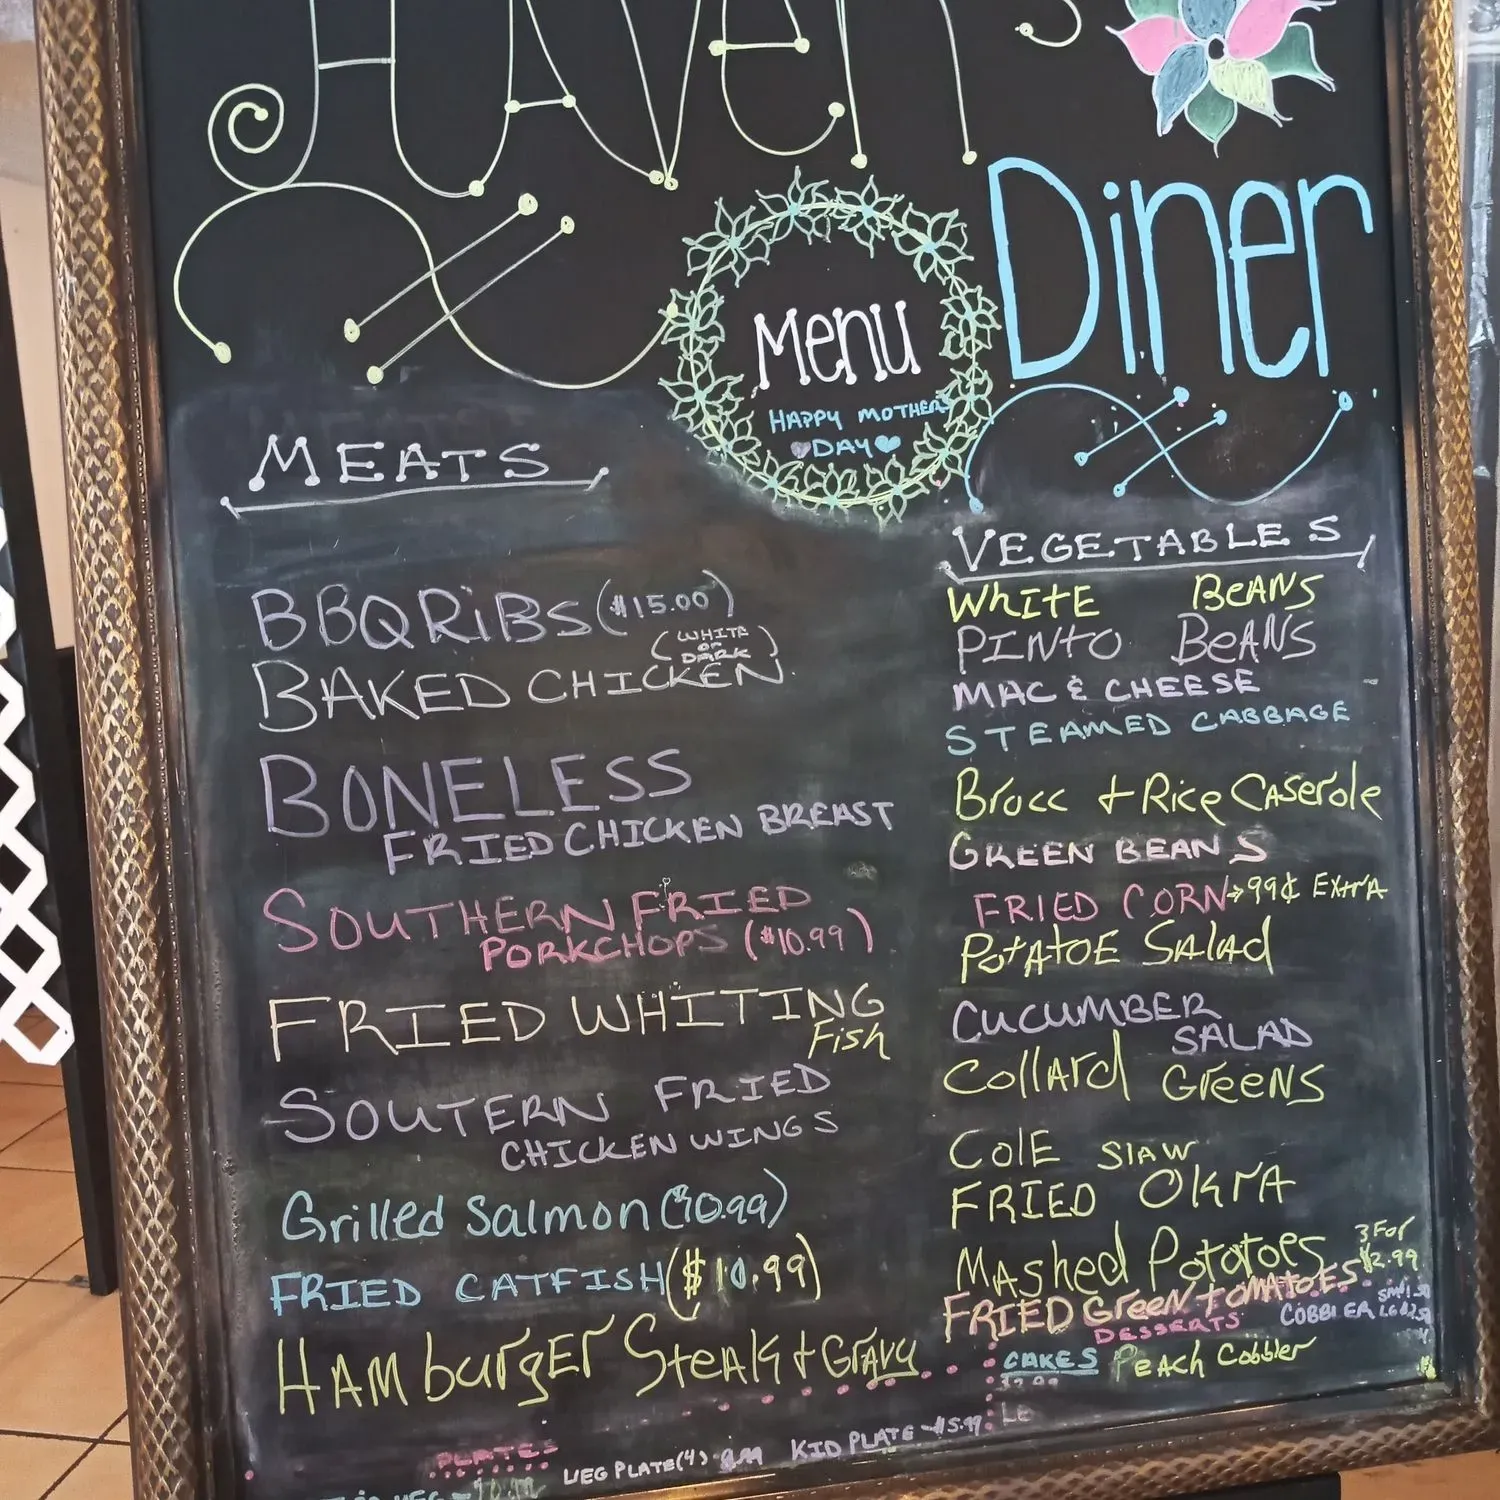 HAVEN'S
Diner
Menu
HAPPY MOTHERS
DAY
MEATS
BBQ RiBS ($15.00)
(WHITE
OR
DARK)
BAKED CHICKEN
BONELESS
FRIED CHICKEN BREAST
SOUTHERN FRIED
PORKCHOPS ($10.99)
FRIED WHITING
Fish
SOUTERN FRIED
CHICKEN WINGS
Grilled Salmon
FRIED CATFISH ($10.99)
HAMburgER STEAK + GRAVy
VEGETABLES
WhITE BEANS
PINtO BEANS
MAC & CHEESE
STEAMED CABBAGE
Brocc + Rice CASErole
GREEN BEANS
FRIED CORN→99¢ ExtrA
PotAtOE SAlAd
CUCUMBER
SALAD
CollArd GreENS
ColE SlAW
FRIED OkrA
MAShed PotAtoes
FRIED GreeN tOMATOES 3 For
$2.99
DESSERTS
COBBLER
CAKES
PeAch Cobbler
PLATES
VEG PLATE(4)
KID PLATE - $5.99